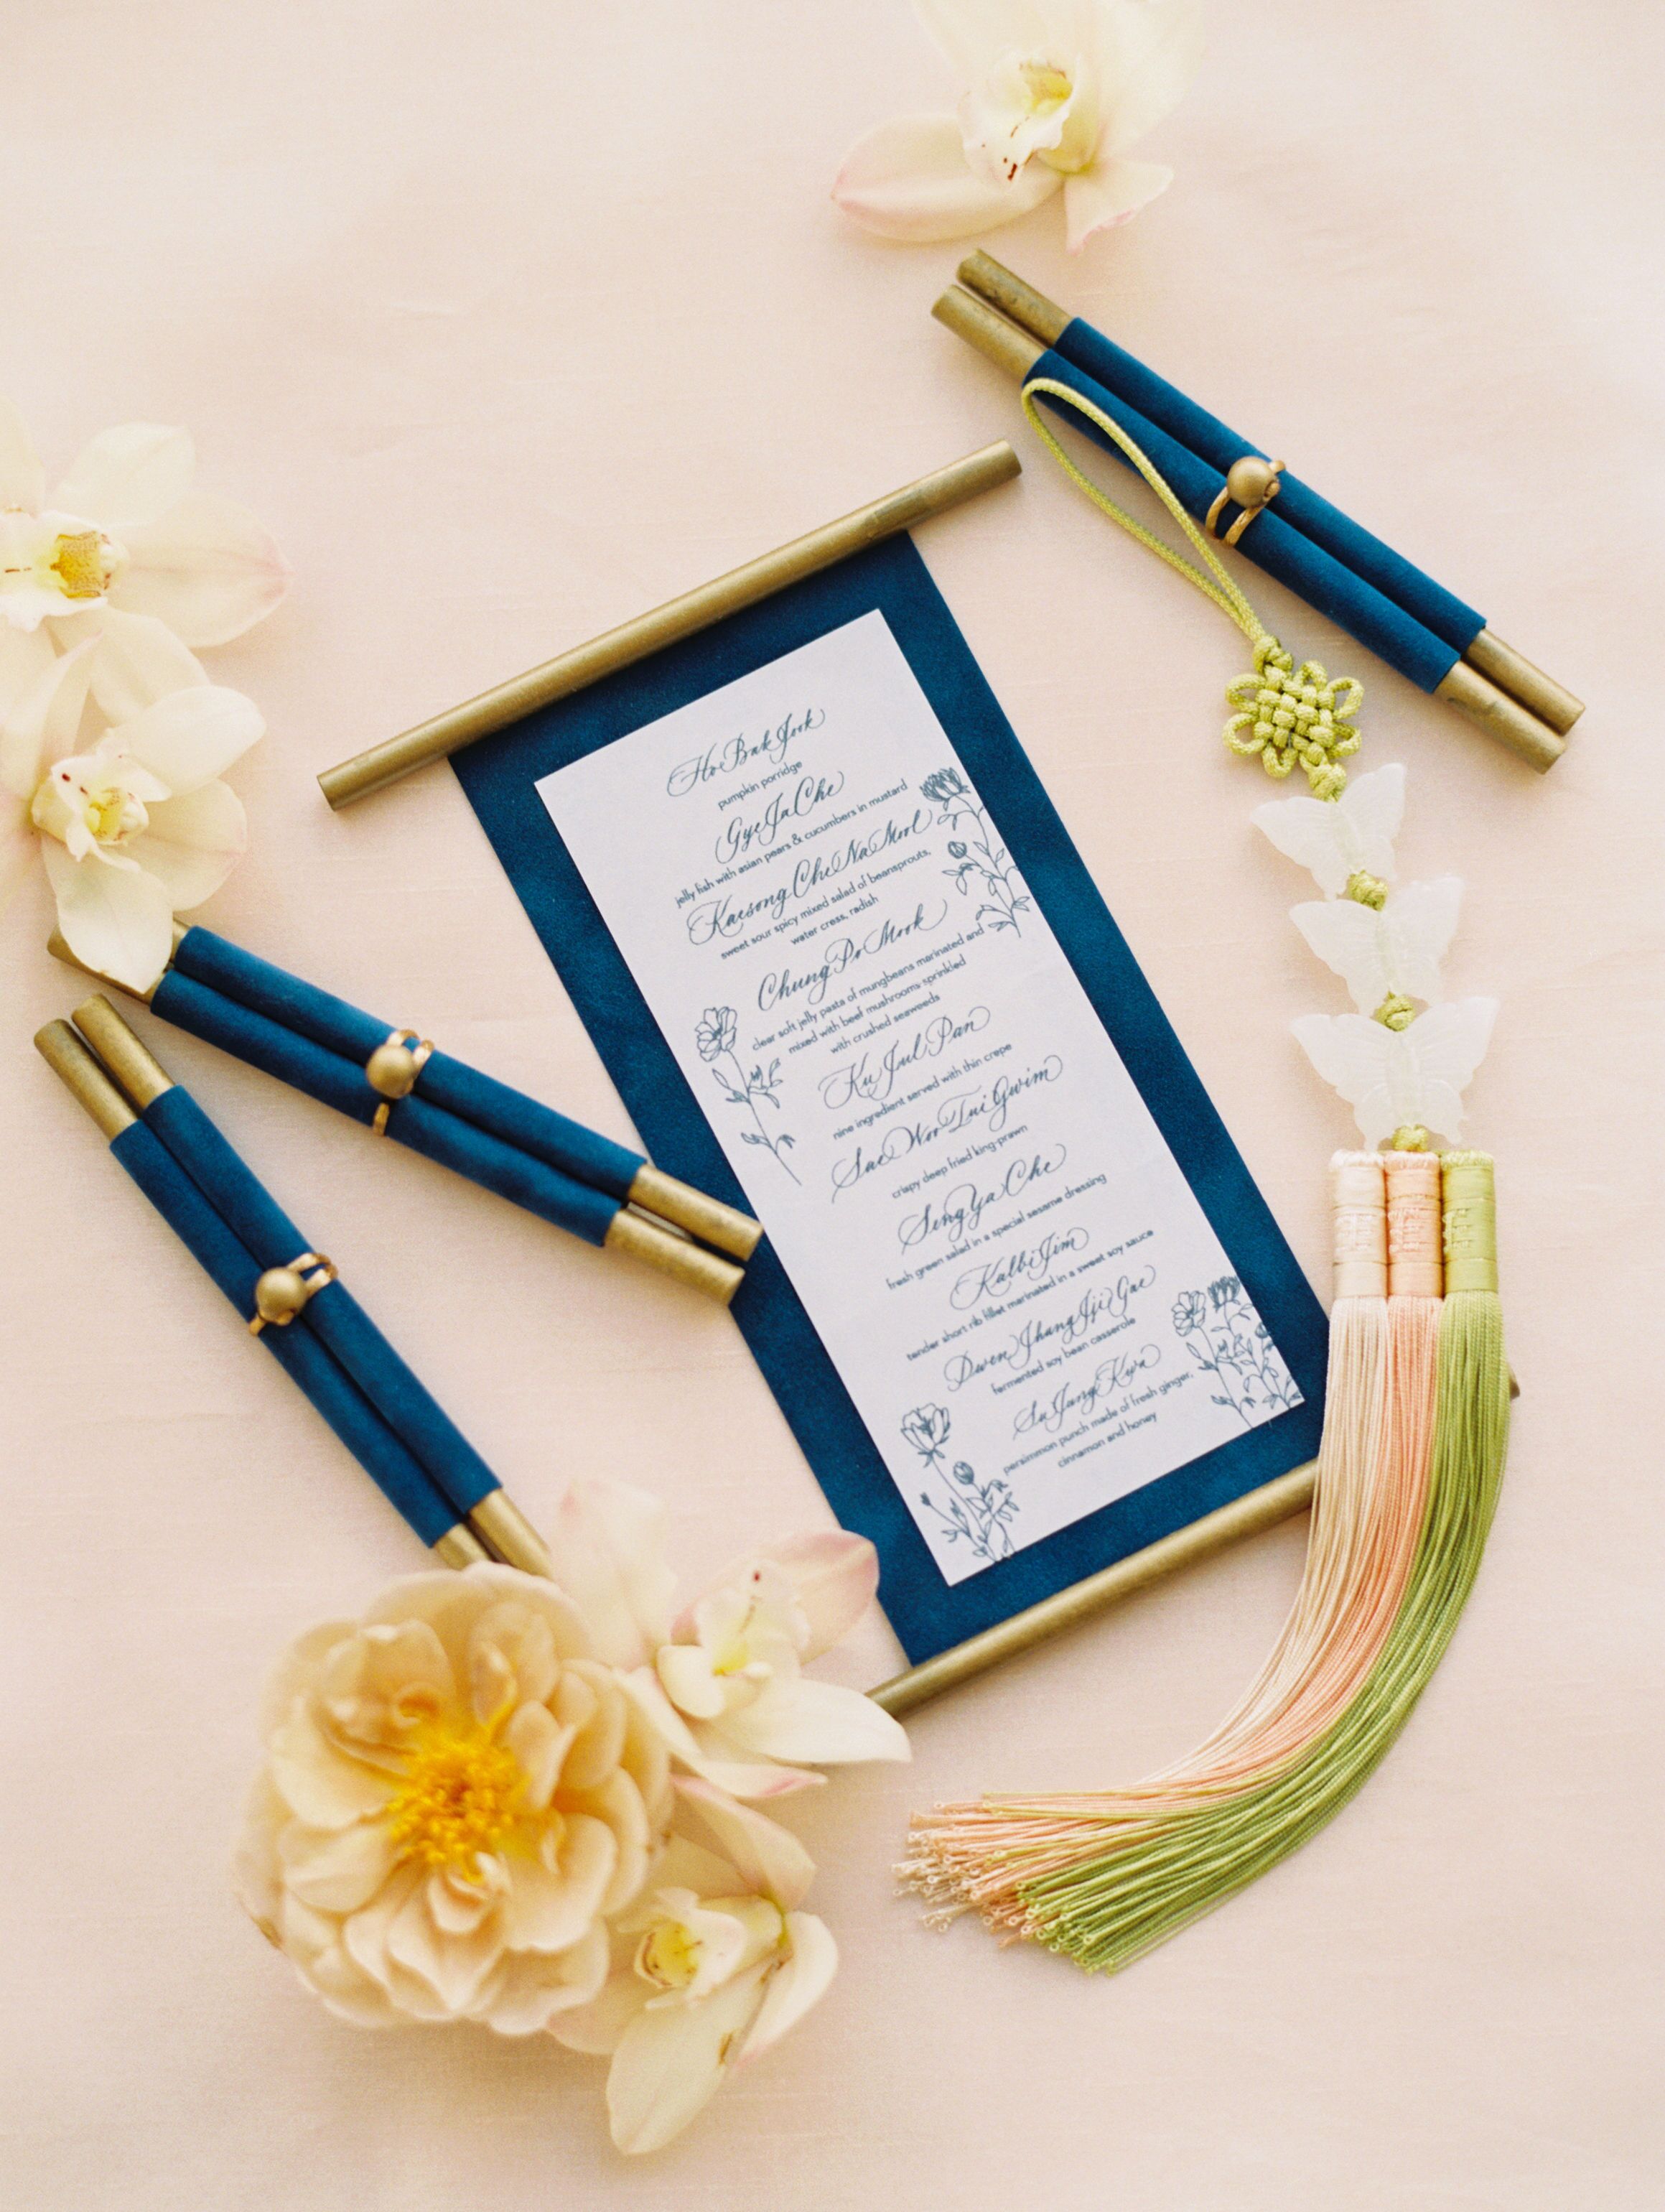 Ho Bak Jook
pumpkin porridge
Gye Ja Che
jelly fish with asian pears & cucumbers in mustard
Kaesong Che Na Mool
sweet sour spicy mixed salad of beansprouts,
water cress, radish
Chung Po Mook
clear soft jelly pasta of mungbeans marinated and
mixed with beef mushrooms- sprinkled
with crushed seaweeds
Ku Jul Pan
nine ingredient served with thin crepe
Sae Woo Tui Gwim
crispy deep fried king-prawn
Seng Ya Che
fresh green salad in a special sesame dressing
Kalbi Jim
tender short rib fillet marinated in a sweet soy sauce
Dwen Jhang Jji Gae
fermented soy bean casserole
Su Jung Kwa
persimmon punch made of fresh ginger,
cinnamon and honey